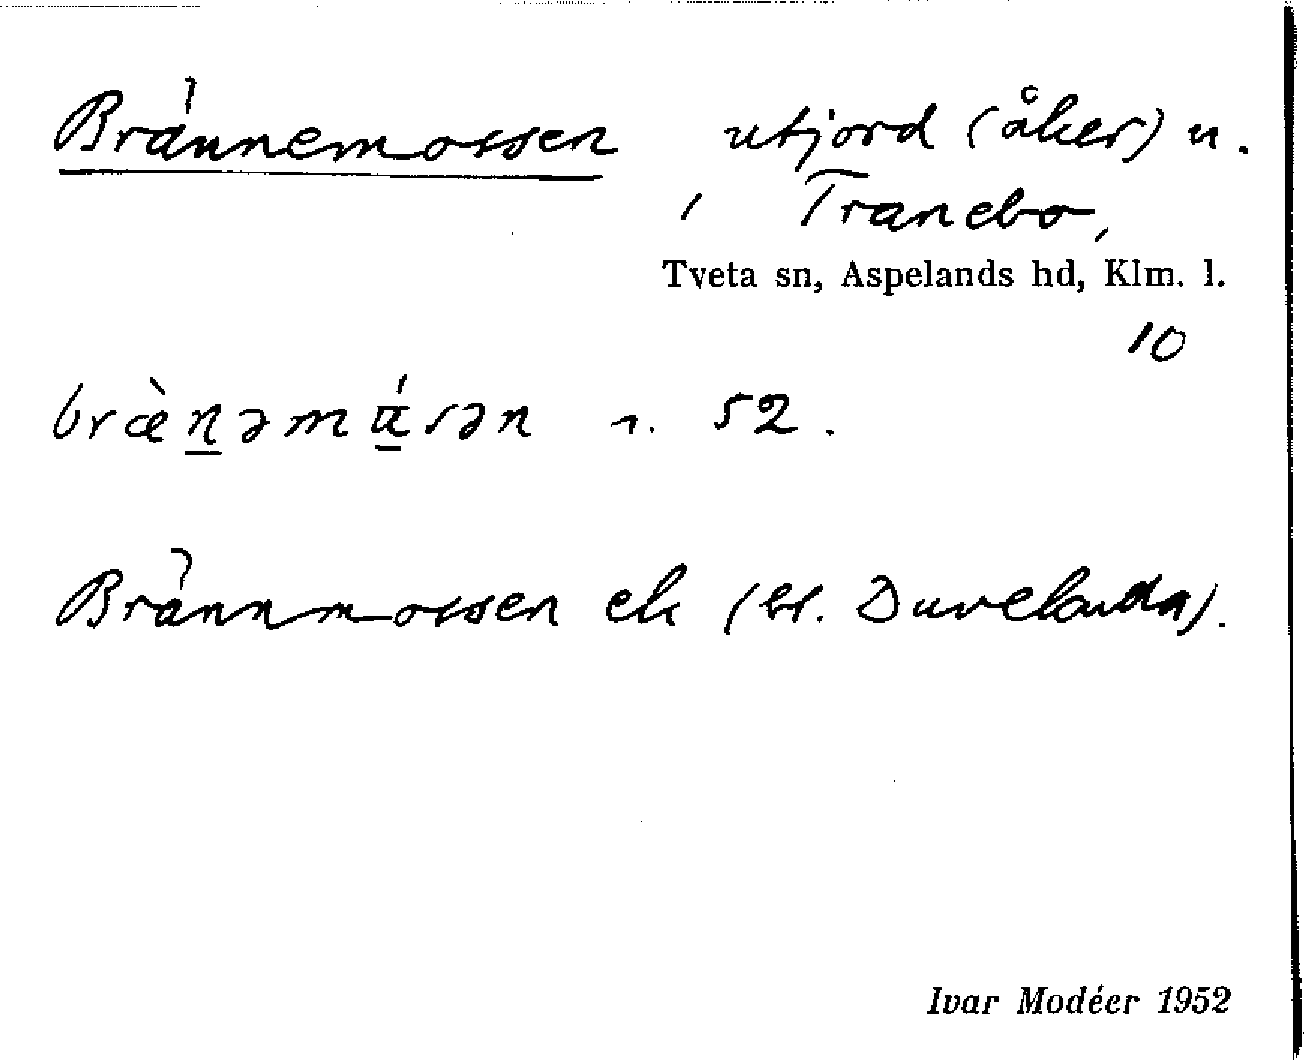 Brännemossen utjord (åker) u.
i Tranebo,
Tveta sn, Aspelands hd, Klm. l.
10
52.
Brännmossen ek (bl. Duvelunda).
Ivar Modéer 1952